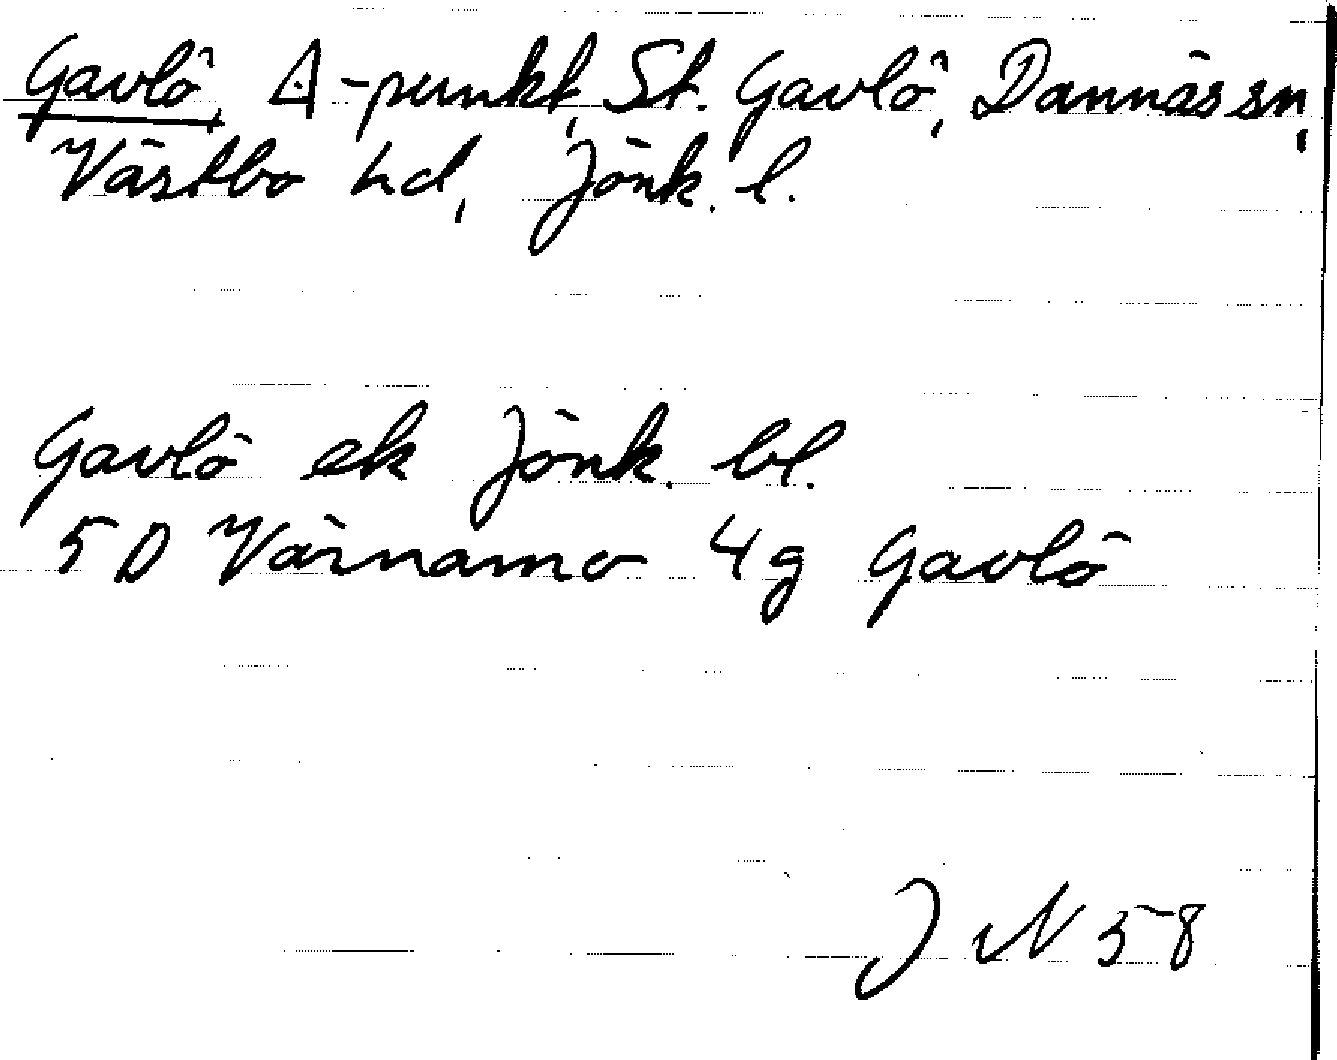 Gavlö, △-punkt, St. Gavlö, Dannäs sn,
Västbo hd, Jönk. l.
Gavlö ek Jönk. bl.
5 D Värnamo 4 g Gavlö
J N 58